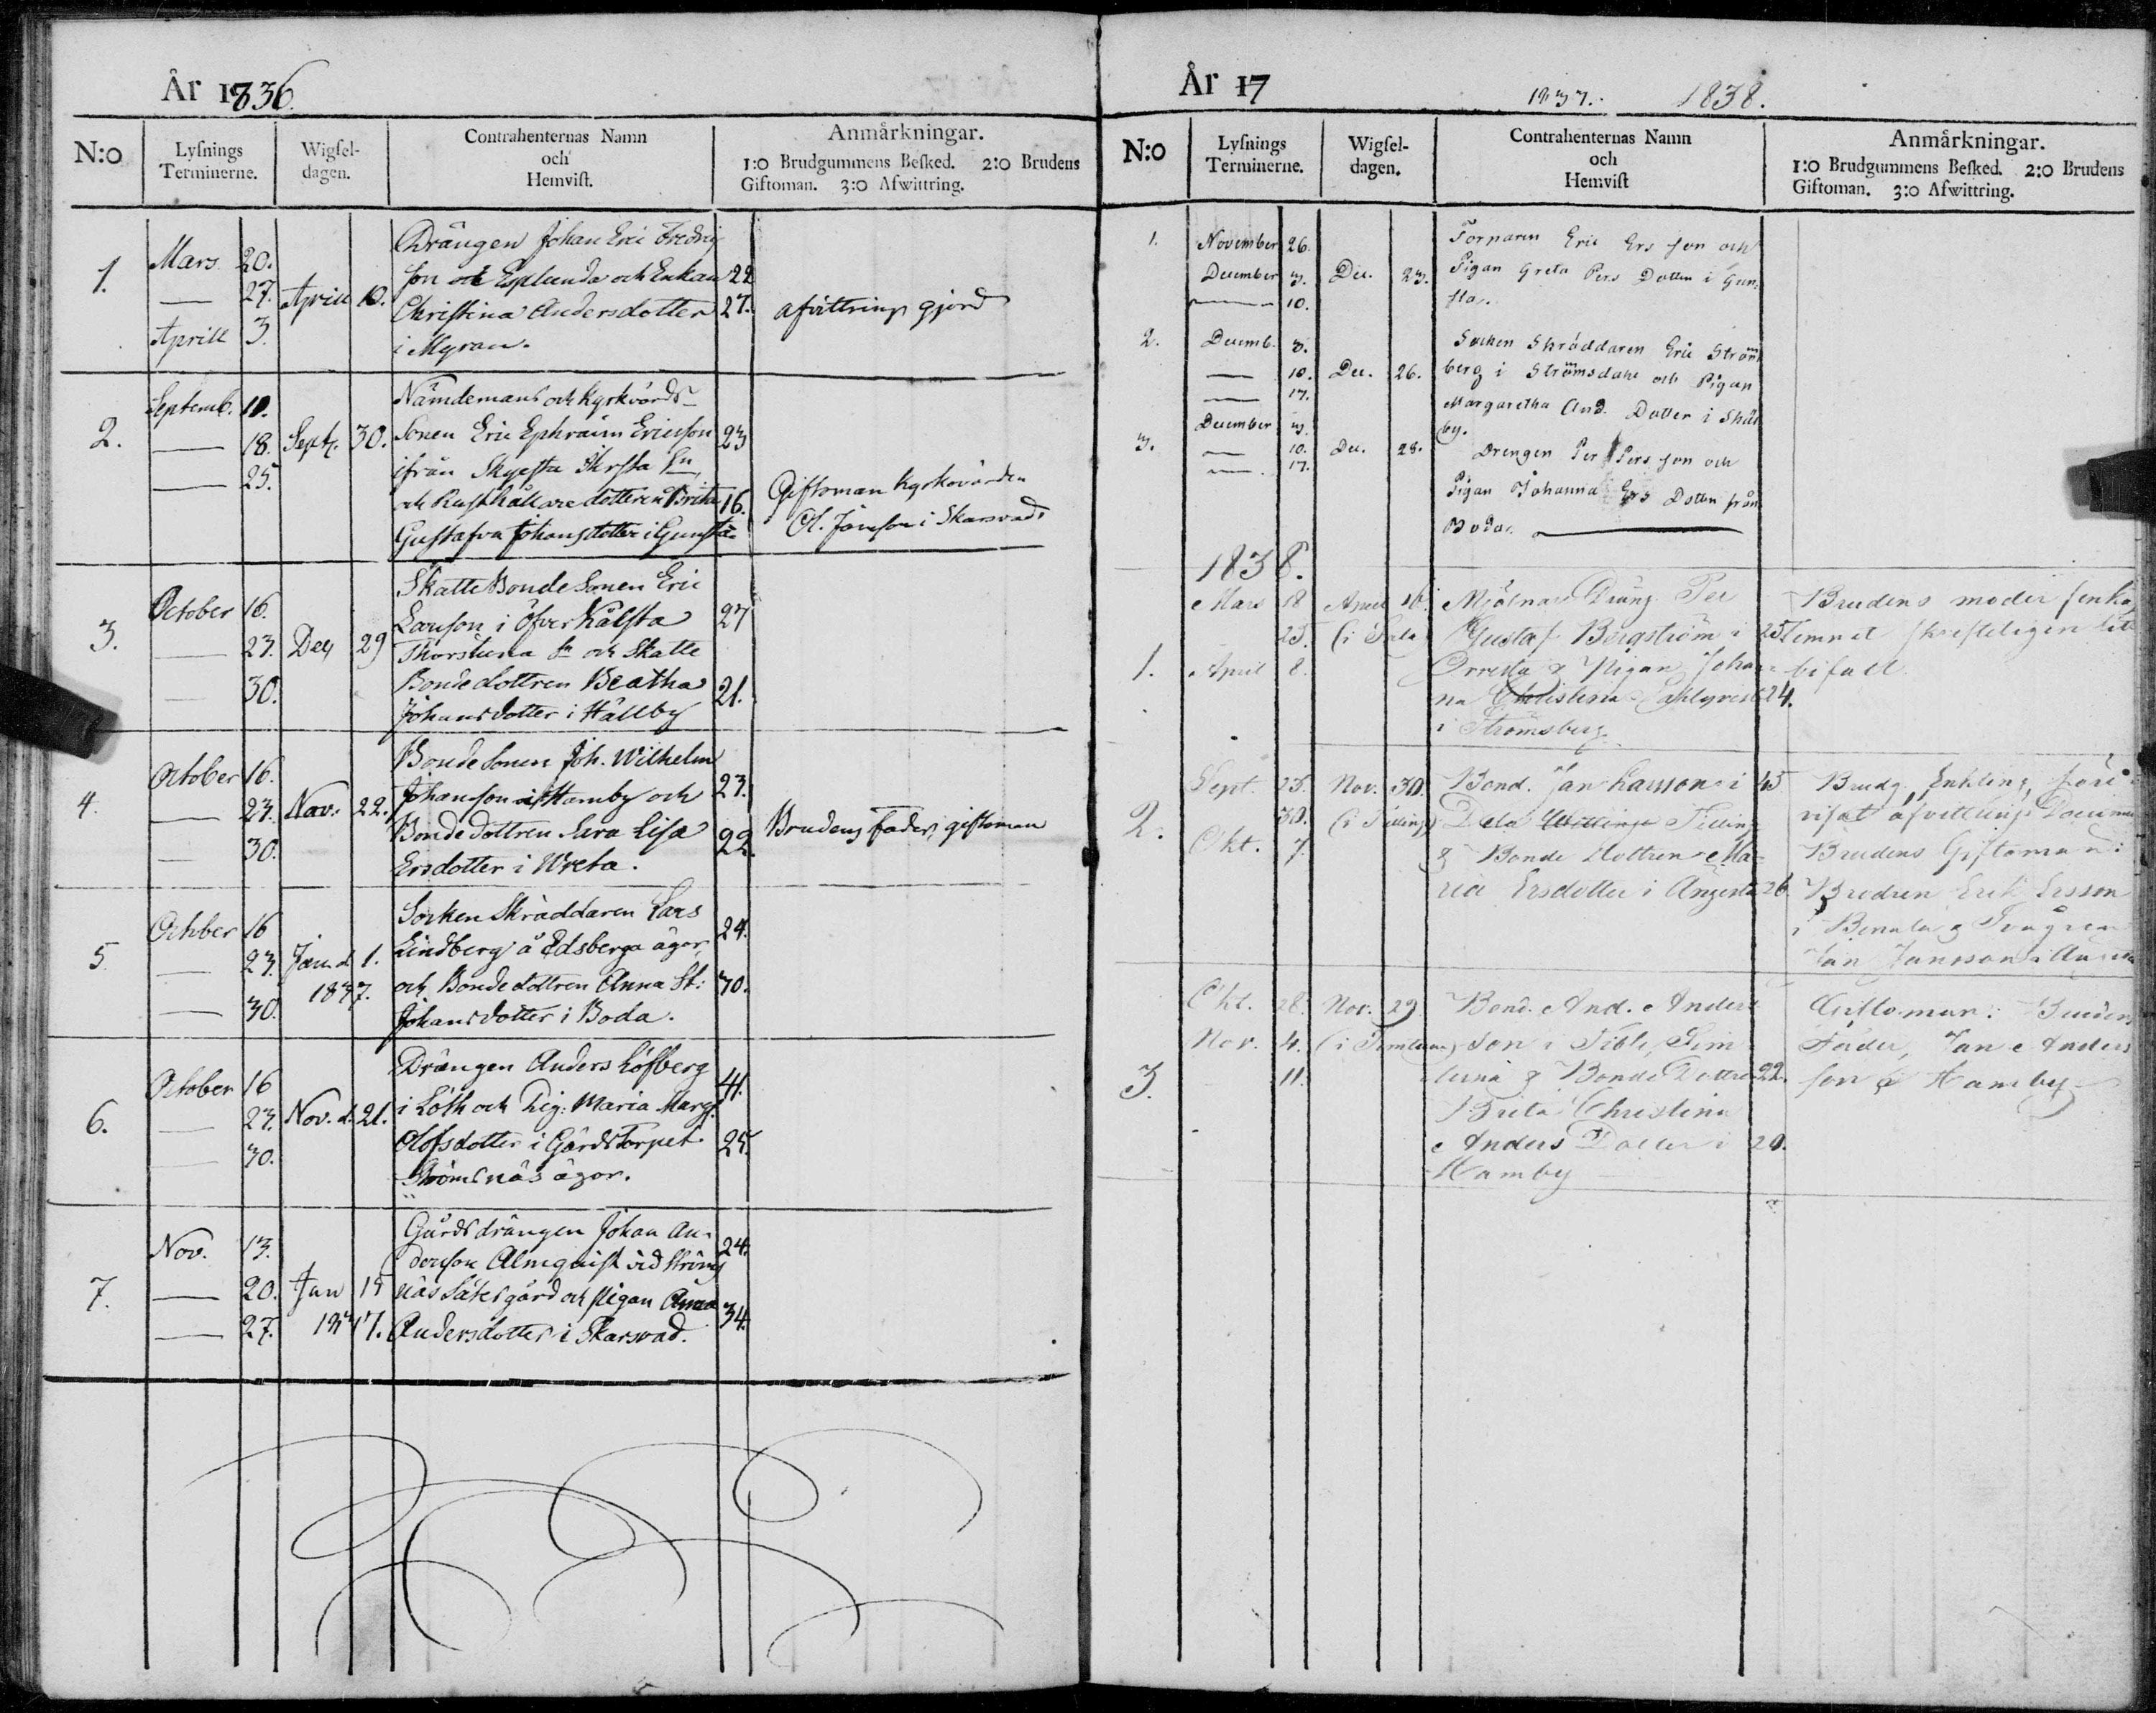 År 1836.
N:o
Lysnings Terminerne.
Wigsel-dagen.
Contrahenternas Namn och Hemvist.
Anmärkningar.
1:o Brudgummens Besked. 2:o Brudens
Giftoman. 3:o Afwittring.
1.
Mars 20.
— 27. Aprill 10.
Aprill 3.
Drängen Johan Eric Fredrig
son och Esplunda och Enkan 22
Christina Andersdotter 27.
i Myran.
afvittring gjord
2.
Septemb. 11.
— 18. Sept. 30.
— 25.
Nämdemans och Kyrkvärds-
Sonen Eric Ephraim Ericsson 23
ifrån Skyesta
och Rusthållare dotteren Brita 16.
Gustafva Johansdotter i Gunsta
Giftoman Kyrkovärden
Ol. Jansson i Skarsvad.
3.
October 16.
— 23. Dec 29
— 30.
Skatte Bonde Sonen Eric
Larsson i Öfver Kålsta 27
Thorstuna Sn och Skatte
Bonde dottren Beatha 21.
Johansdotter i Hällby
4.
October 16.
— 23. Nov. 22.
— 30.
Bonde Sonen Joh. Wilhelm
Johansson i Hamby och 23.
Bonde dottren Sara Lisa 22.
Ersdotter i Wreta.
Brudens fader, giftoman
5.
October 16
— 23. Jan. d. 1.
— 30. 1837.
Socken Skräddaren Lars 24.
Lindberg å Edsberga ägor,
och Bonde dottren Anna St: 30.
Johansdotter i Boda.
6.
October 16
— 23. Nov. d. 21.
— 30.
Drängen Anders Löfberg 41.
i Löth och Pig. Maria Marg.
Olofsdotter i Gårdstorpet 25.
Strömsnäs ägor.
7.
Nov. 13.
— 20. Jan 15
— 27. 1837.
Gårdsdrängen Johan An- 24.
dersson Almquist vid Ströms
näs Sätesgård och pigan Anna 34.
Andersdotter i Skarsvad.
År 17
1837. 1838.
N:o
Lysnings Terminerne.
Wigsel-dagen.
Contrahenternas Namn och Hemvist
Anmärkningar.
1:o Brudgummens Besked. 2:o Brudens
Giftoman. 3:o Afwittring.
1.
November 26.
December 3. Dec. 23.
— 10.
Torparen Eric Ers son och
Pigan Greta Pers Dotter i Gun-
sta.
2.
Decemb. 3.
— 10. Dec. 26.
— 17.
Socken Skräddaren Eric Ström
berg i Strömsdahl och Pigan
Margaretha And. Dotter i Skäl
by.
3.
December 3.
— 10. Dec. 28.
— 17.
Drengen Per Pers son och
Pigan Johanna Ers Dotter från
Boda.
1838.
1.
Mars 18 April 16
25. (i Sala)
April 8.
Mjölnare Dräng Per
Gustaf Bergström i 25
Orresta & Pigan Johan-
na Christina Sahlqvist 24.
i Strömsberg
Brudens moder
lemnat skrifteligen sitt
bifall
2.
Sept. 23. Nov. 30.
30. (i Tilling)
Okt. 7.
Bond. Jan Larsson i 45
Dela Tilling
& Bonde Dottren Ma-
ria Ersdotter i Ängesta 26.
Brudg. Enkling, före-
visat afvittrings Docum
Brudens Giftoman:
Brodren Erik Ersson
i Bennla & Svågren
Jan Jansson i
3.
Okt. 28. Nov. 29
Nov. 4. (i Simtuna)
11.
Bond. And. Anders
son i Tible, Sim
tuna & Bonde Dottren 22.
Brita Christina
Anders Dotter i 20.
Hamby
Giftoman: Brudens
Fader, Jan Anders
son i Hamby